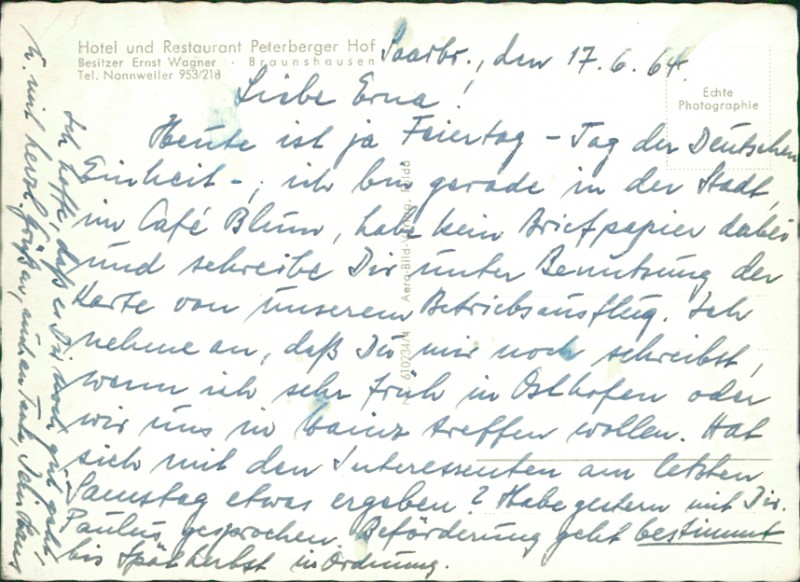 Hotel und Restaurant Peterberger Hof
Besitzer Ernst Wagner · Braunshausen
Tel. Nonnweiler 953/218
Echte
Photographie
Saarbr., den 17.6.64.
Liebe Erna!
Heute ist ja Feiertag - Tag der Deutschen
Einheit -, ich bin gerade in der Stadt,
im Café Blum, habe kein Briefpapier dabei
und schreibe Dir unter Benutzung der
Karte von unserem Betriebsausflug. Ich
nehme an, daß Du mir noch schreibst,
wann ich sehr früh in Osthofen oder
wir uns in Mainz treffen wollen. Hat
sich mit den Interessenten am letzten
Samstag etwas ergeben? Habe gestern mit Dir.
Paulus gesprochen. Beförderung geht bestimmt
bis Spätherbst in Ordnung.
Ich hoffe, daß es Dir sonst gut geht
u. mit herzl. Grüßen, auch an Tante, Dein Hans
Aero-Bild-Verlag,
610234/4